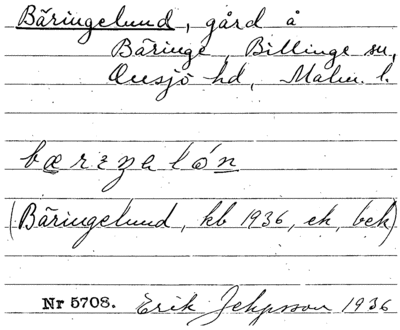 Bäringelund, gård å
Bäringe, Billinge sn,
Onsjö hd, Malm. l.
bærɪŋəlón
(Bäringelund, kb 1936, ek, bek)
Nr 5708. Erik Jeppsson 1936